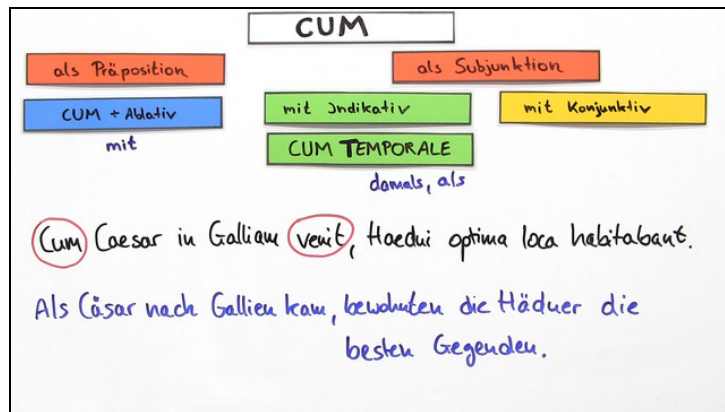 CUM
als Präposition
als Subjunktion
CUM + Ablativ
mit Indikativ
mit Konjunktiv
mit
CUM TEMPORALE
damals, als
Cum Caesar in Galliam venit, Haedui optima loca habitabant.
Als Cäsar nach Gallien kam, bewohnten die Häduer die
besten Gegenden.